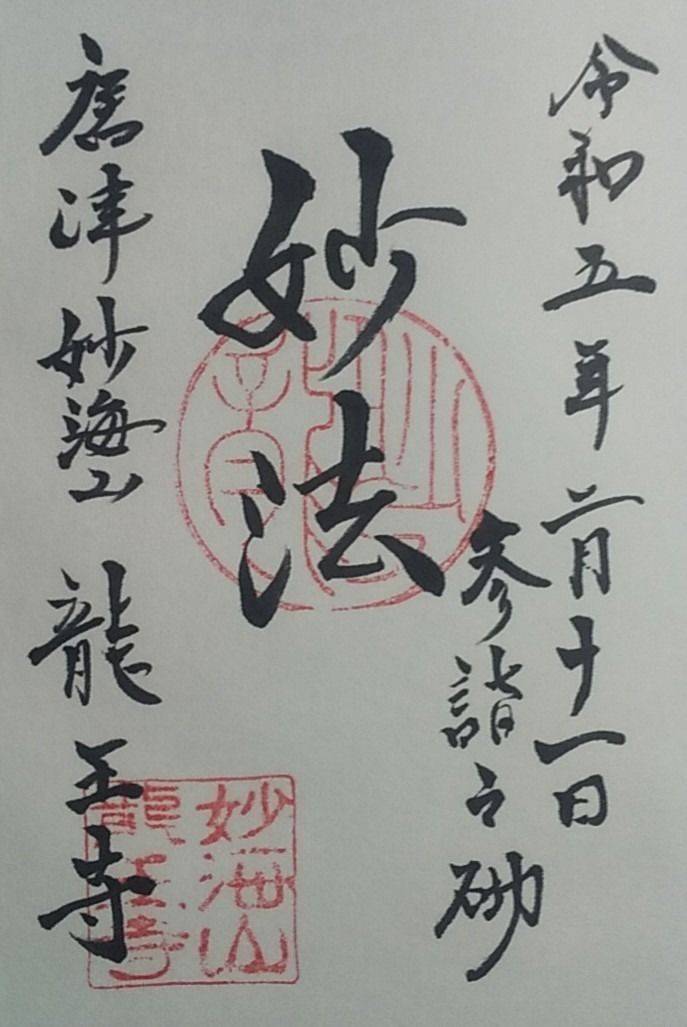 令和五年二月十一日
参詣之砌
妙法
唐津 妙海山 龍王寺
妙海山
龍王寺